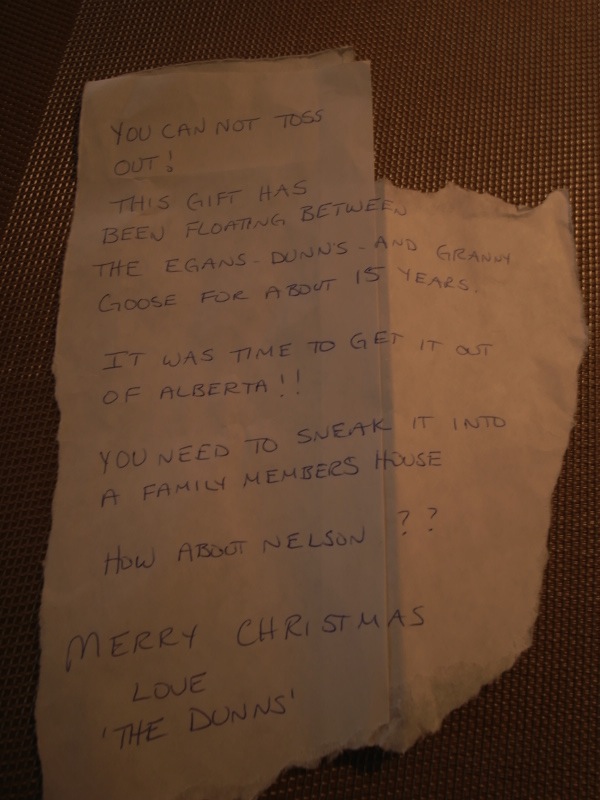 YOU CAN NOT TOSS
OUT!
THIS GIFT HAS
BEEN FLOATING BETWEEN
THE EGANS - DUNN'S - AND GRANNY
GOOSE FOR ABOUT 15 YEARS.
IT WAS TIME TO GET IT OUT
OF ALBERTA!!
YOU NEED TO SNEAK IT INTO
A FAMILY MEMBERS HOUSE
HOW ABOUT NELSON ??
MERRY CHRISTMAS
LOVE
'THE DUNNS'